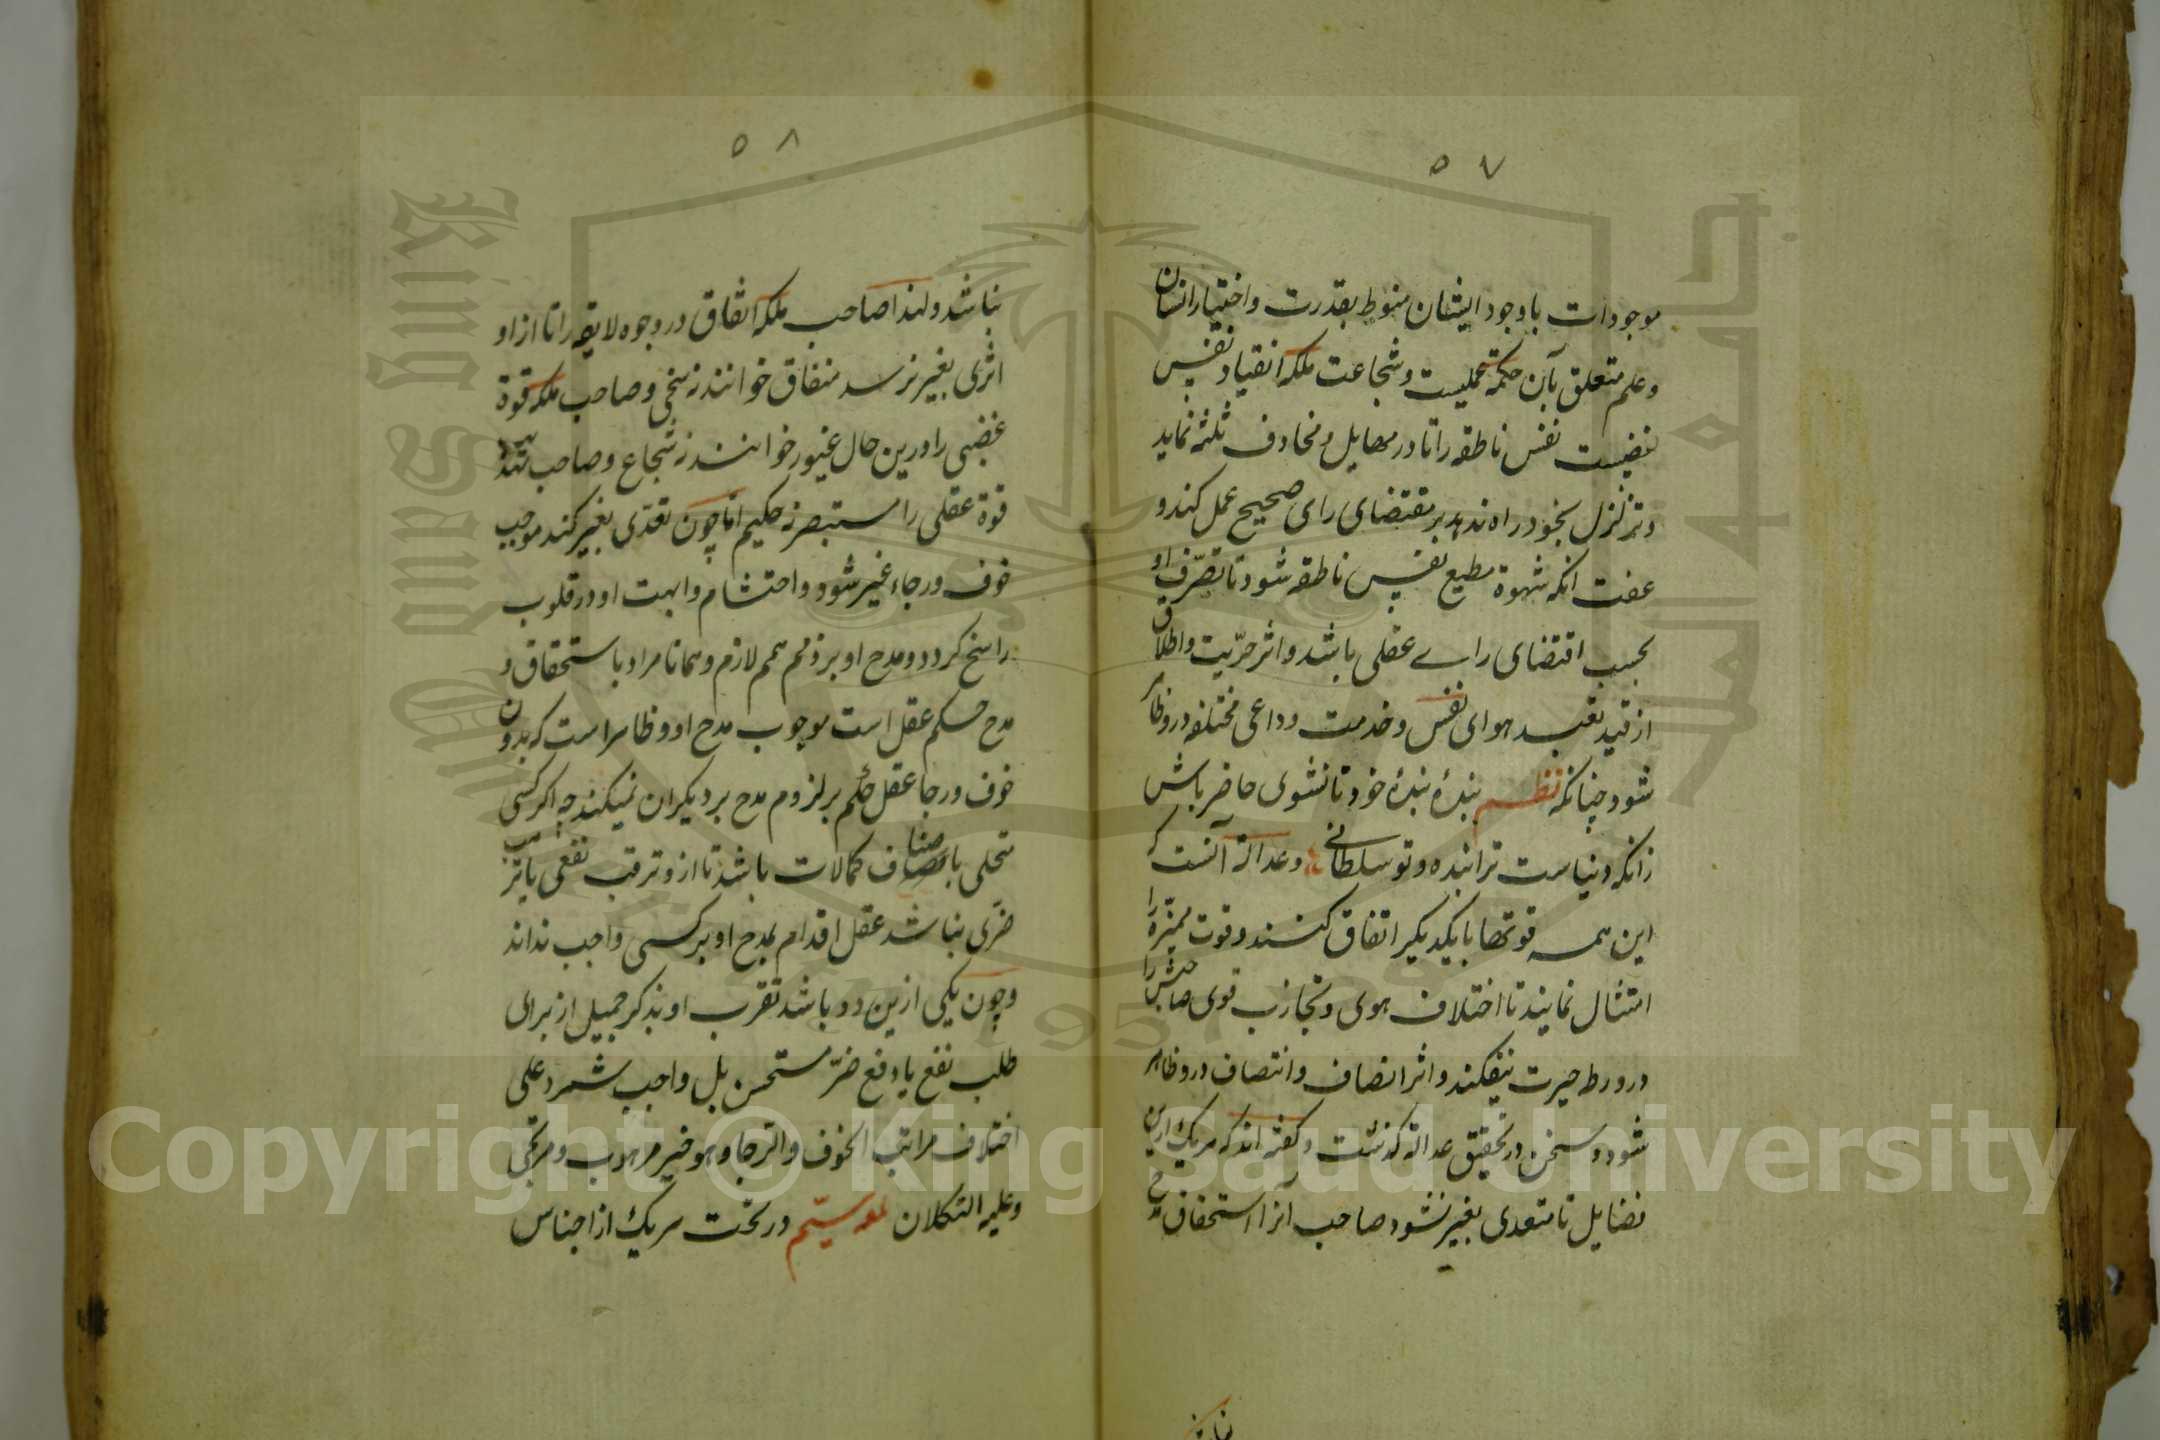 ٥٧
موجودات با وجود ایشان منوط بقدرت و اختیار انسان
و علم متعلق بآن حکمة عملیست و شجاعت ملکه انقیاد نفس
نفس ناطقه را تا در مهایل و مخاوف ثلثه نماید
و تزلزل بخود راه ندهد بر مقتضای رای صحیح عمل کند و
عفت انکه شهوة مطیع نفس ناطقه شود تا تصرف او
بحسب اقتضای رای عقلی باشد و اثر حریت و اطلاق
از قید تعبد هوای نفس و خدمت دواعی مختلفه درو ظاهر
شود چنانکه نظم بندهٔ بندهٔ خود تا نشوی حاضر باش
زانکه دنیاست ترا بنده و تو سلطانی و عدالة آنست که
این همه قوتها با یکدیکر اتفاق کنند و قوت ممیزه را
امتثال نمایند تا اختلاف هوی و تجاذب قوی صاحبش را
در ورطه حیرت نیفکند و اثر انصاف و انتصاف درو ظاهر
شود و سخن در تحقیق عدالة کذشت و کفته اند که هریک ازین
فضایل تا متعدی بغیر نشود صاحب آنرا استحقاق مدح
نباشد
٥٨
نباشد و لهذا صاحب ملکه انفاق در وجوه لایقه را تا از او
اثری بغیر نرسد منفاق خوانند نه سخی و صاحب ملکه قوة
غضبی را درین حال غیور خوانند نه شجاع و صاحب
قوة عقلی را مستبصر نه حکیم اما چون تعدی بغیر کند موجب
خوف و رجاء غیر شود و احتشام و ابهت او در قلوب
راسخ کردد و مدح او بر ذمم همم لازم و همانا مراد باستحقاق و
مدح حکم عقل است بوجوب مدح او و ظاهر است که بدون
خوف و رجا عقل حکم بر لزوم مدح بر دیکران نمیکند چه اکر کسی
متحلی باصناف کمالات باشد تا ازو ترقب نفعی یا ترهب
ضری نباشد عقل اقدام بمدح او بر کسی واجب نداند
و چون یکی ازین دو باشد تقرب او بذکر جمیل از برای
طلب نفع یا دفع ضر مستحسن بل واجب شمرد علی
اختلاف مراتب الخوف و الرجا و هو خیر مرهوب و مرتجی
و علیه التکلان لمعه سیم در تحت هر یک از اجناس
Copyright © King Saud University
King Saud University
جامعة الملك سعود
1957